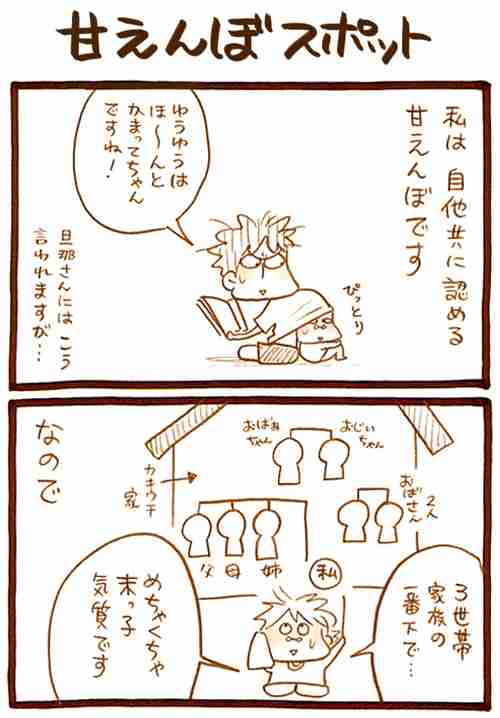 甘えんぼスポット
私は 自他共に認める
甘えんぼです
ゆうゆうは
ほ〜んと
かまってちゃん
ですね!
ぴっとり
旦那さんには こう
言われますが…
おじい
ちゃん
おばあ
ちゃん
おばさん
2人
カキウチ
家
父
母
姉
私
なので
3世帯
家族の
一番下で…
めちゃくちゃ
末っ子
気質です